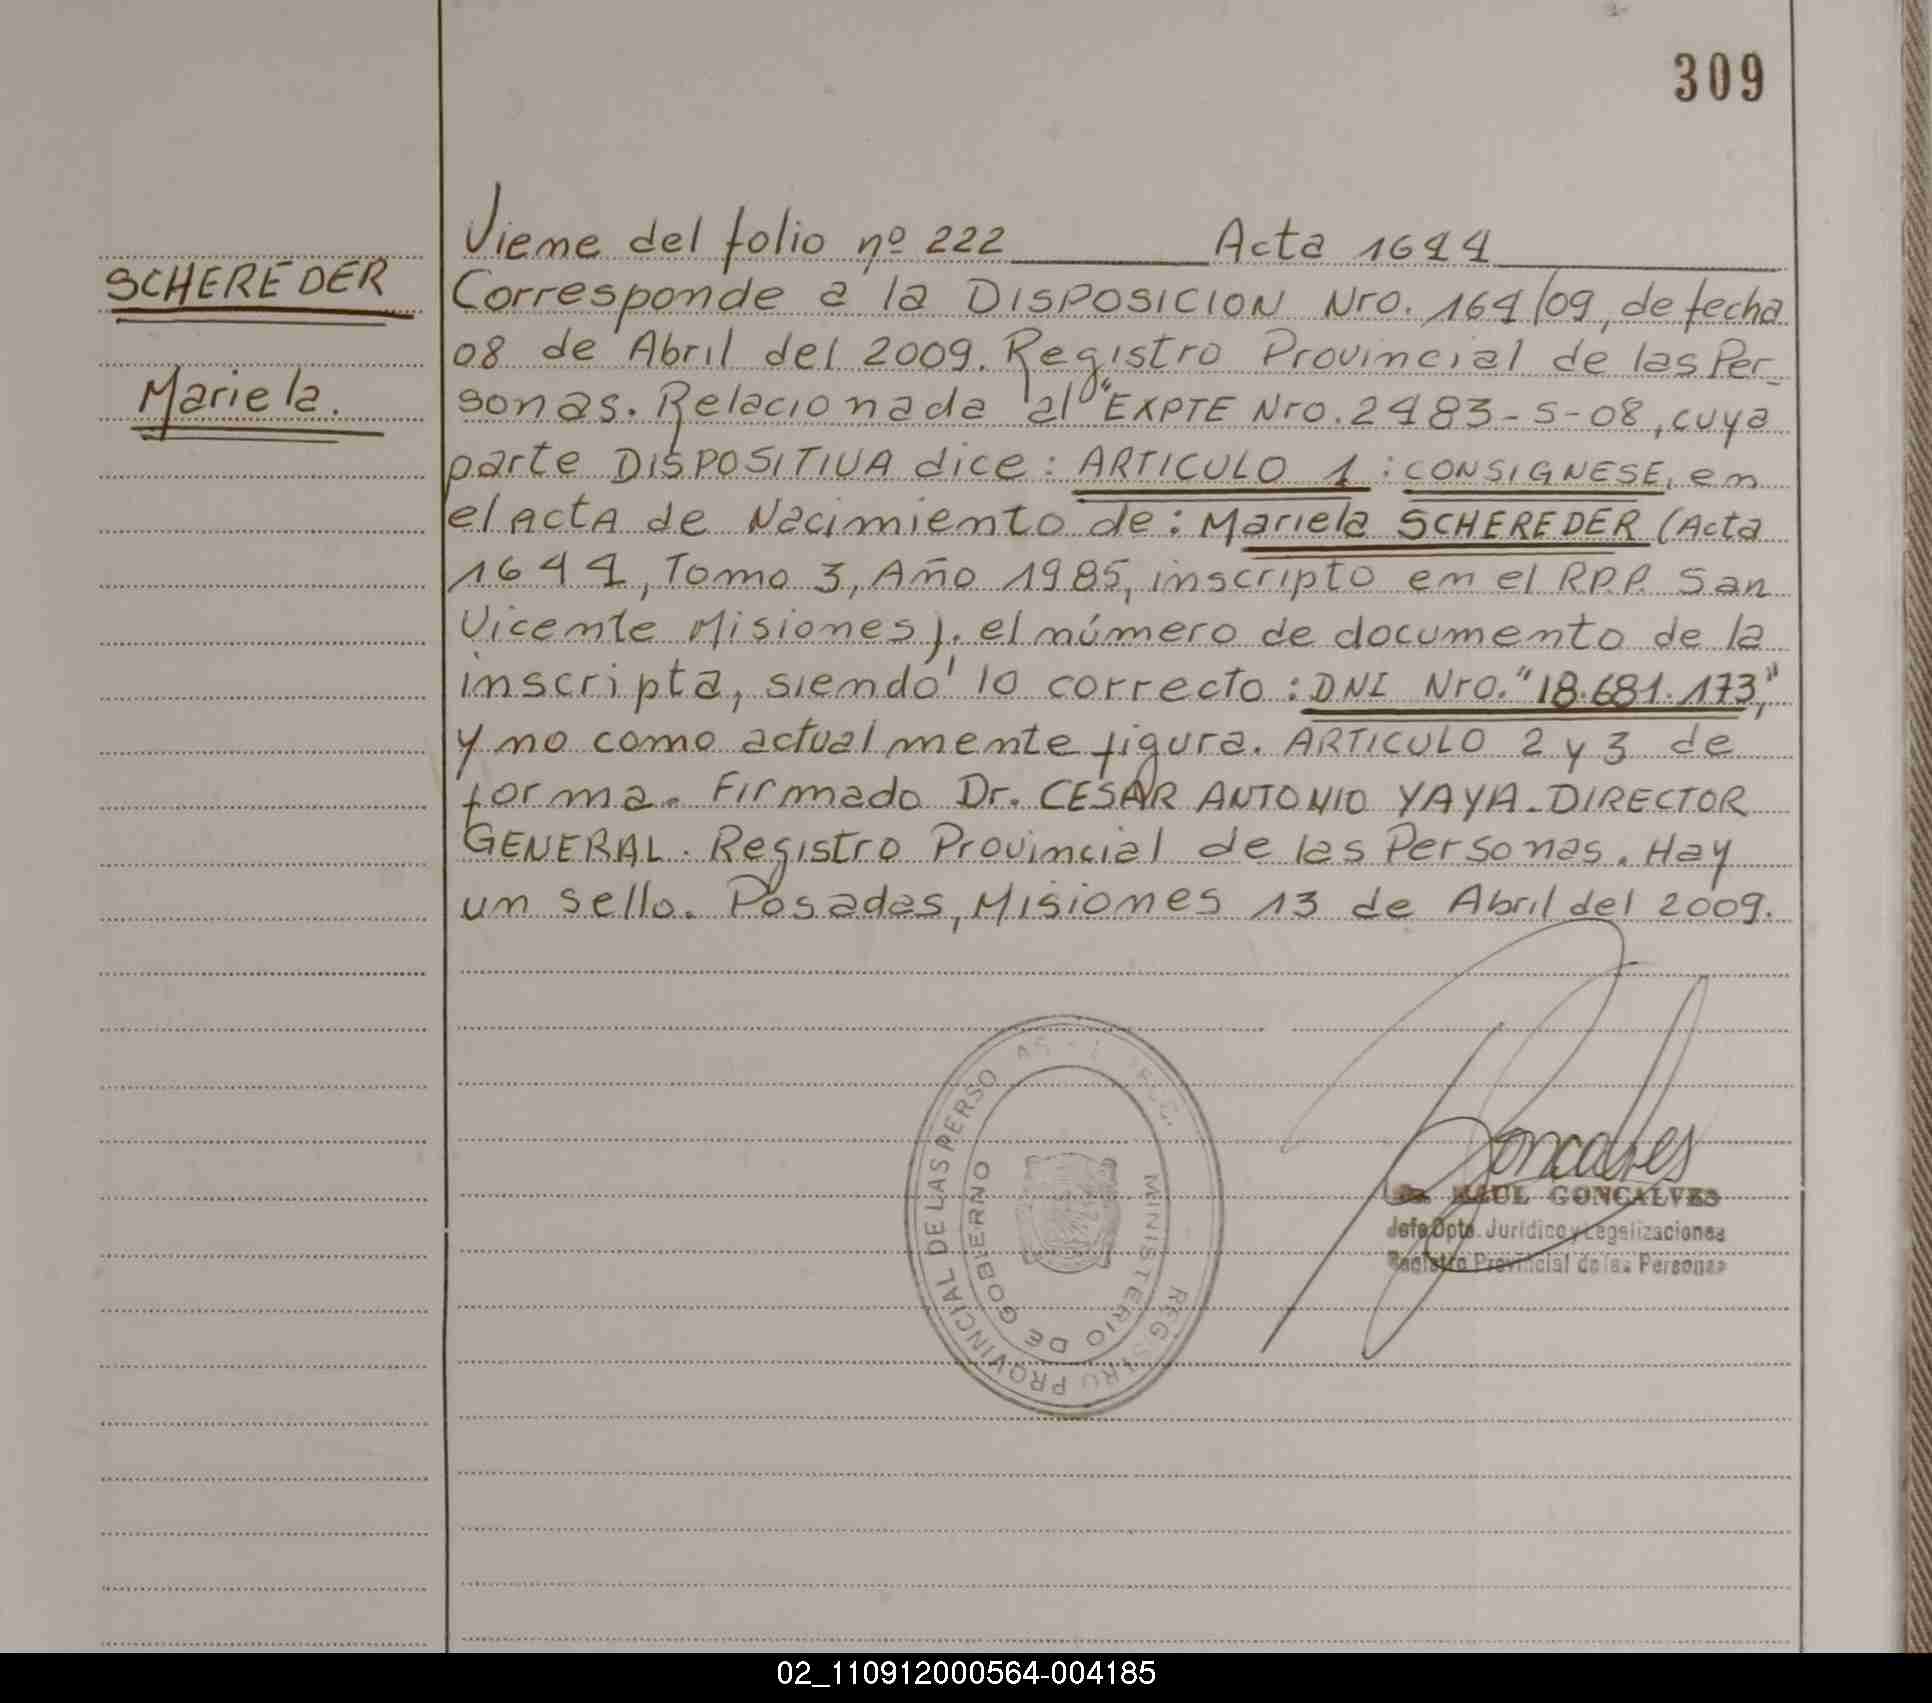 309
Viene del folio nº 222 Acta 1644
SCHEREDER
Corresponde a la DISPOSICION Nro. 164/09, de fecha
08 de Abril del 2009. Registro Provincial de las Per-
Mariela.
sonas. Relacionada al "EXPTE Nro. 2483-S-08, cuya
parte DISPOSITIVA dice: ARTICULO 1: CONSIGNESE, en
el ACTA de Nacimiento de: Mariela SCHEREDER (Acta
1644, Tomo 3, Año 1985, inscripto en el R.P.P. San
Vicente Misiones), el número de documento de la
inscripta, siendo lo correcto: DNI Nro. "18.681.173,"
y no como actualmente figura. ARTICULO 2 y 3 de
forma. Firmado Dr. CESAR ANTONIO YAYA-DIRECTOR
GENERAL. Registro Provincial de las Personas. Hay
un sello. Posadas, Misiones 13 de Abril del 2009.
REGISTRO PROVINCIAL DE LAS PERSO
MINISTERIO DE GOBIERNO
Goncalves
RAUL GONCALVES
Jefe Dpto. Jurídico y Legalizaciones
Registro Provincial de las Personas
02_110912000564-004185